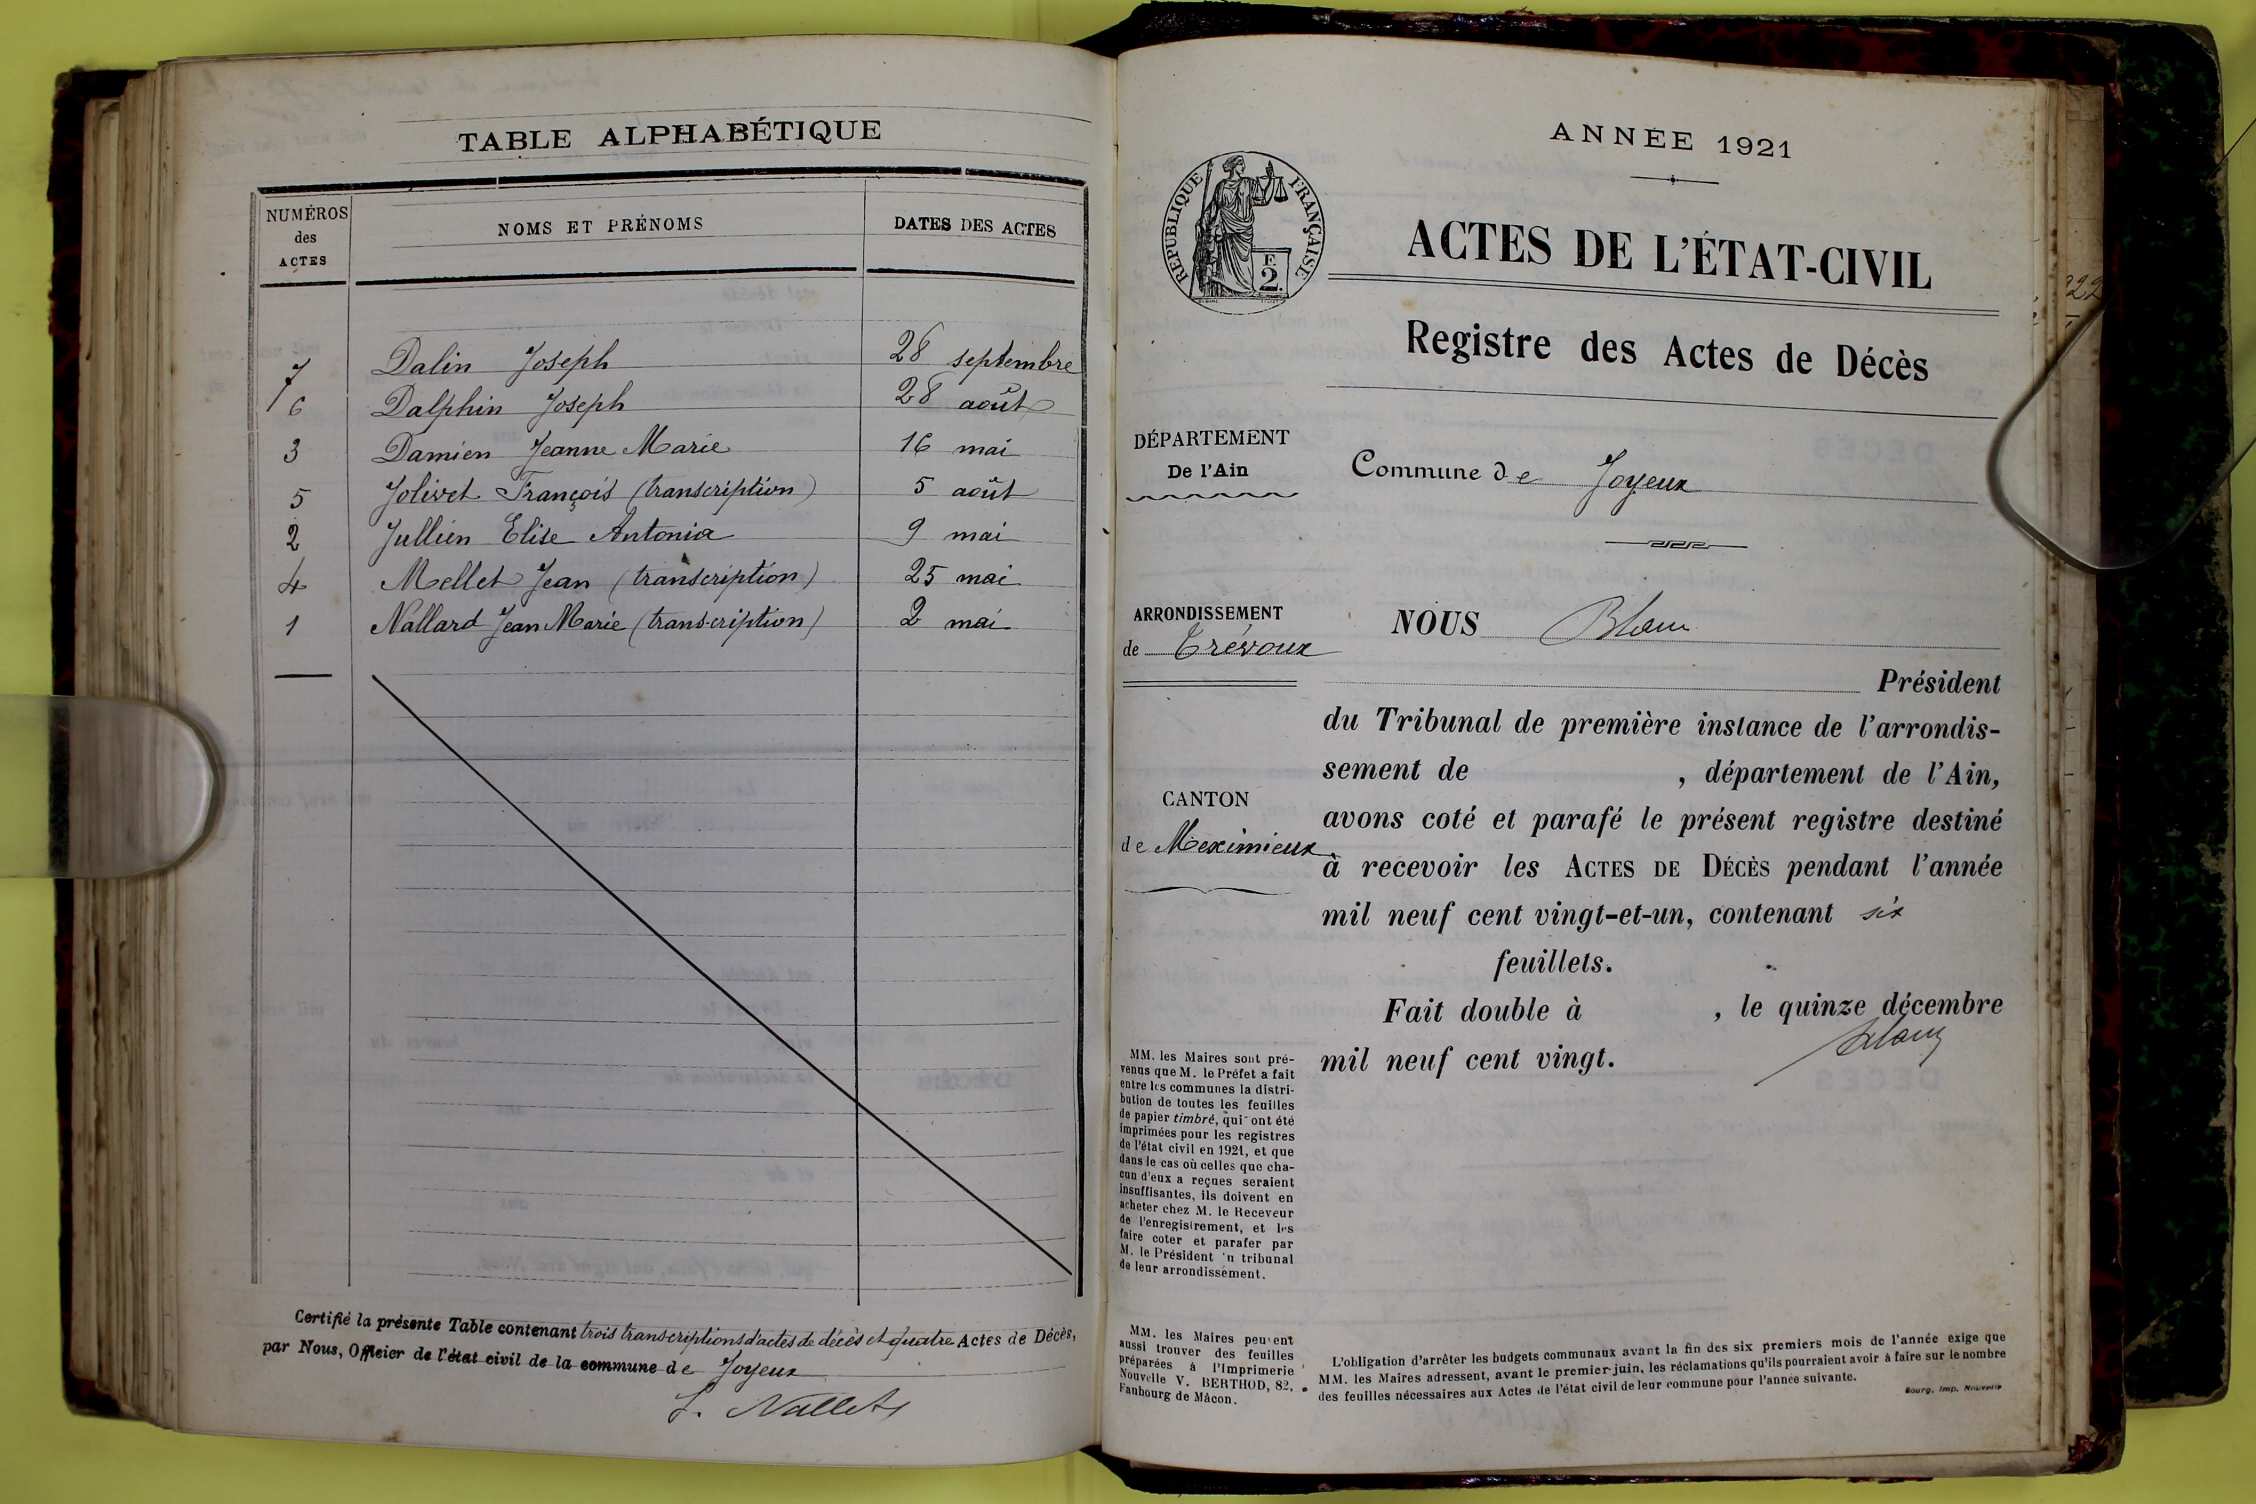 TABLE ALPHABÉTIQUE
NUMÉROS des ACTES
NOMS ET PRÉNOMS
DATES DES ACTES
7 Dalin Joseph 28 septembre
6 Dalphin Joseph 28 août
3 Damien Jeanne Marie 16 mai
5 Jolivet François (transcription) 5 août
2 Jullien Elise Antonia 9 mai
4 Mellet Jean (transcription) 25 mai
1 Nallard Jean Marie (transcription) 2 mai
Certifié la présente Table contenant trois transcriptions d'actes de décès et quatre Actes de Décès,
par Nous, Officier de l'état civil de la commune de Joyeux
ANNÉE 1921
RÉPUBLIQUE FRANÇAISE
F.
2.
ACTES DE L'ÉTAT-CIVIL
Registre des Actes de Décès
DÉPARTEMENT
De l'Ain
Commune de Joyeux
ARRONDISSEMENT
de Trévoux
CANTON
de Meximieux
NOUS Blanc
Président
du Tribunal de première instance de l'arrondis-
sement de , département de l'Ain,
avons coté et parafé le présent registre destiné
à recevoir les ACTES DE DÉCÈS pendant l'année
mil neuf cent vingt-et-un, contenant six
feuillets.
Fait double à , le quinze décembre
mil neuf cent vingt.
Blanc
MM. les Maires sont pré-
venus que M. le Préfet a fait
entre les communes la distri-
bution de toutes les feuilles
de papier timbré, qui ont été
imprimées pour les registres
de l'état civil en 1921, et que
dans le cas où celles que cha-
cun d'eux a reçues seraient
insuffisantes, ils doivent en
acheter chez M. le Receveur
de l'enregistrement, et les
faire coter et parafer par
M. le Président 'u tribunal
de leur arrondissement.
MM. les Maires peuvent
aussi trouver des feuilles
préparées à l'Imprimerie
Nouvelle V. BERTHOD, 82,
Faubourg de Mâcon.
L'obligation d'arrêter les budgets communaux avant la fin des six premiers mois de l'année exige que
MM. les Maires adressent, avant le premier juin, les réclamations qu'ils pourraient avoir à faire sur le nombre
des feuilles nécessaires aux Actes de l'état civil de leur commune pour l'année suivante.
Bourg, Imp. Nouvelle